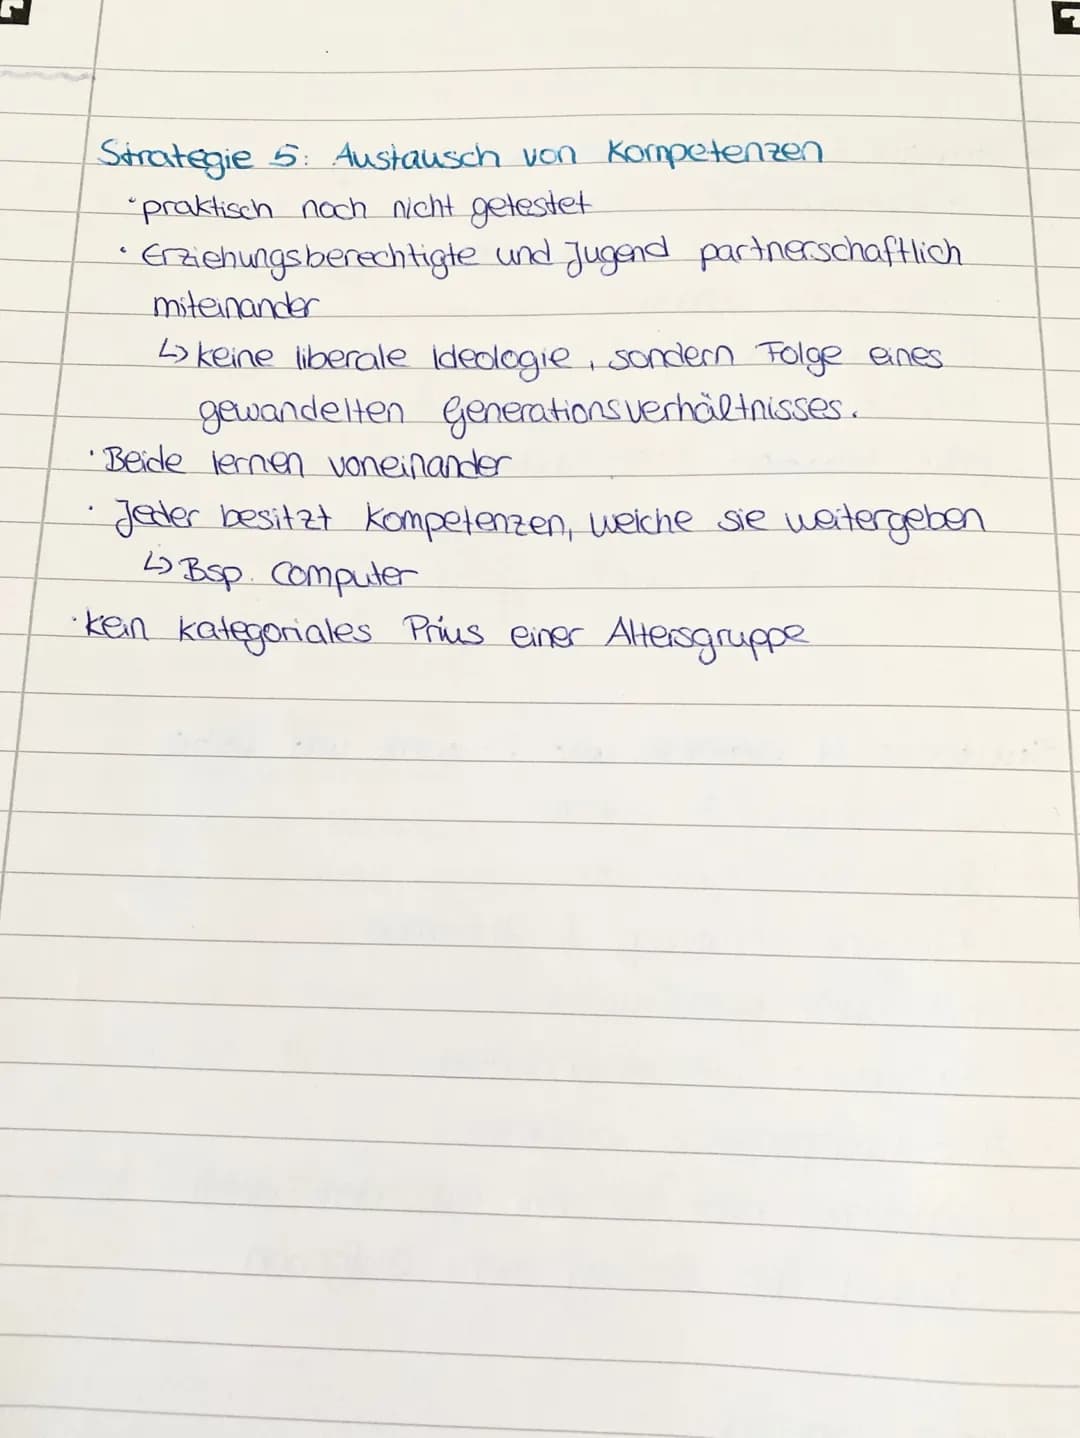 Strategie 5: Austausch von Kompetenzen
• praktisch noch nicht getestet
• Erziehungsberechtigte und Jugend partnerschaftlich
miteinander
↳ keine liberale Ideologie, sondern Folge eines
gewandelten Generationsverhältnisses.
• Beide lernen voneinander
• Jeder besitzt Kompetenzen, welche sie weitergeben
↳ Bsp. Computer
• kein kategoriales Prius einer Altersgruppe